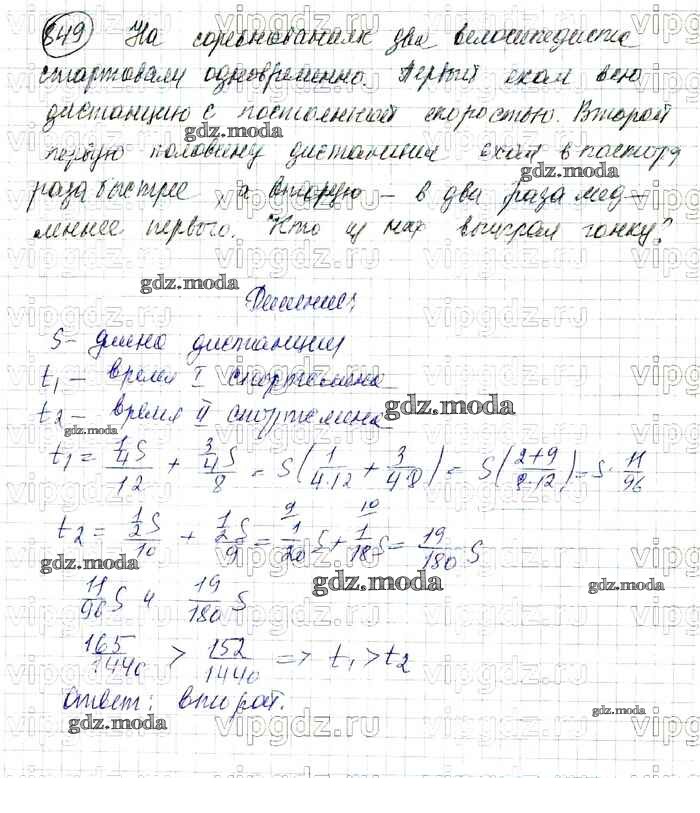 849 На соревнованиях два велосипедиста
стартовали одновременно. Первый ехал всю
дистанцию с постоянной скоростью. Второй
gdz.moda
первую половину дистанции ехал в полтора
gdz.moda
раза быстрее, а вторую – в два раза мед-
леннее первого. Кто из них выиграл гонку?
gdz.moda
Решение:
S – длина дистанции
t₁ – время I спортсмена
t₂ – время II спортсмена
gdz.moda
gdz.moda
t₁ = (1/4 S)/12 + (3/4 S)/8 = S(1/(4·12) + 3/(4·8)) = S((2+9)/(8·12)) = S · 11/96
t₂ = (1/2 S)/10 + (1/2 S)/9 = 1/20 S + 1/18 S = 19/180 S
gdz.moda
gdz.moda
gdz.moda
11/96 S и 19/180 S
165/1440 > 152/1440 => t₁ > t₂
Ответ: второй.
gdz.moda
gdz.moda
vipgdz.ru